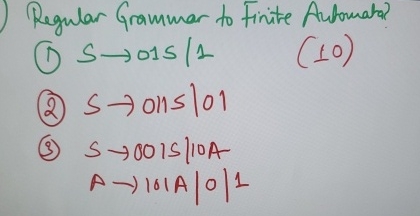 ) Regular Grammar to Finite Automata?
① S → 01S / 1 (10)
② S → 011S | 01
③ S → 001S | 10A
A → 101A | 0 | 1